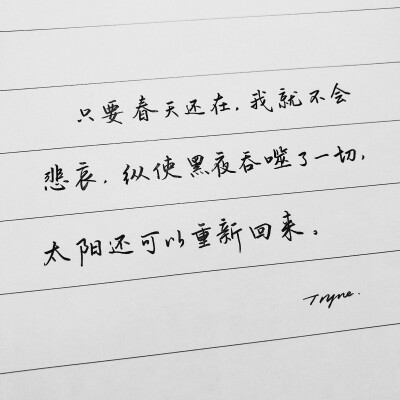 只要春天还在,我就不会
悲哀,纵使黑夜吞噬了一切,
太阳还可以重新回来。
Tryne.